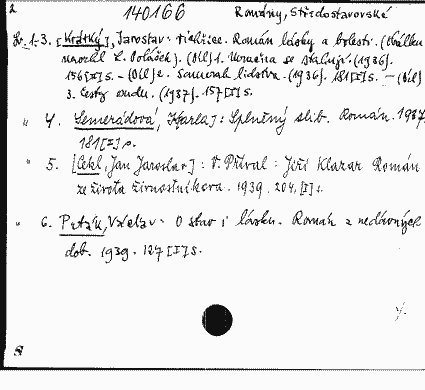 2 140166 Romány, Středostavovské
Sv. 1-3. [Krátký], Jaroslav: Román lásky a bolesti. (Obálku
navrhl K. Poláček). (Díl) 1. se (1936).
156 [I] s. – (Díl) 2. Samorah lidstva. (1936). 181 [I] s. – (Díl)
3. Cesty osudu. (1937). 157 [I] s.
" 4. Semerádová, [Karla]: Splněný slib. Román. 1937.
181 [I] s.
" 5. [Cekl, Jan Jaroslav]: V. Příval: Jiří Klazar Román
ze života živnostníkova. 1939. 204, [I] s.
" 6. Pnták, Václav: O stav i lásku. Román z nedávných
dob. 1939. 127 [I] s.
S